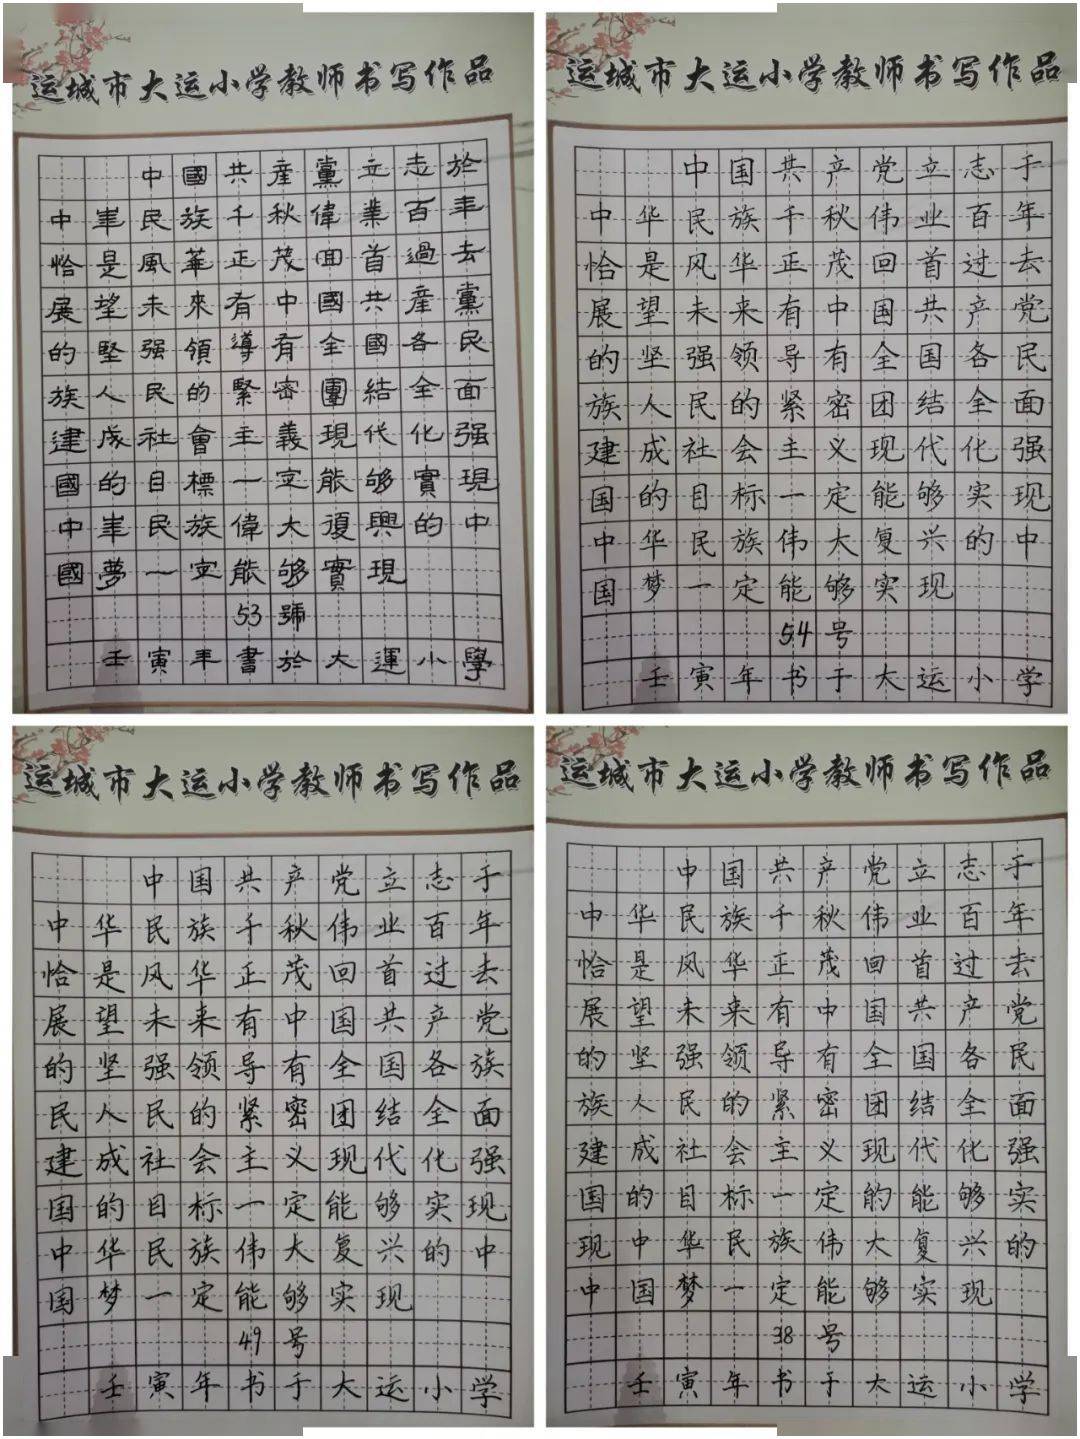 运城市大运小学教师书写作品
中國共産黨立志於
中華民族千秋偉業百年
恰是風華正茂回首過去
展望未來有中國共産黨
的堅强領導有全國各民
族人民的緊密團結全面
建成社會主義現代化强
國的目標一定能够實現
中華民族偉大復興的中
國夢一定能够實現
53號
壬寅年書於大運小學
运城市大运小学教师书写作品
中国共产党立志于
中华民族千秋伟业百年
恰是风华正茂回首过去
展望未来有中国共产党
的坚强领导有全国各民
族人民的紧密团结全面
建成社会主义现代化强
国的目标一定能够实现
中华民族伟大复兴的中
国梦一定能够实现
54号
壬寅年书于大运小学
运城市大运小学教师书写作品
中国共产党立志于
中华民族千秋伟业百年
恰是风华正茂回首过去
展望未来有中国共产党
的坚强领导有全国各族
民人民的紧密团结全面
建成社会主义现代化强
国的目标一定能够实现
中华民族伟大复兴的中
国梦一定能够实现
49号
壬寅年书于大运小学
运城市大运小学教师书写作品
中国共产党立志于
中华民族千秋伟业百年
恰是风华正茂回首过去
展望未来有中国共产党
的坚强领导有全国各民
族人民的紧密团结全面
建成社会主义现代化强
国的目标一定的能够实
现中华民族伟大复兴的
中国梦一定能够实现
38号
壬寅年书于大运小学